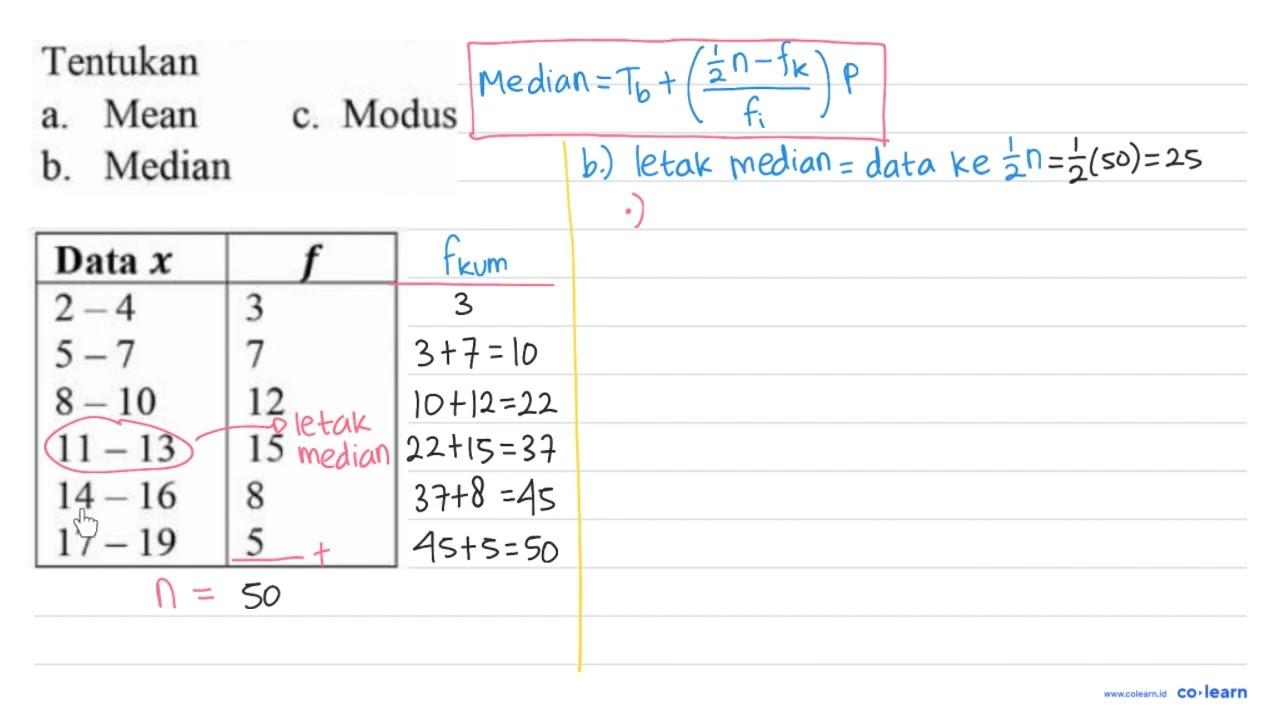 Tentukan
a. Mean c. Modus
b. Median
Median = Tb + (½n - fk / fi) P
b.) letak median = data ke ½n = ½(50) = 25
·)
Data x f fkum
2 – 4 3 3
5 – 7 7 3+7=10
8 – 10 12 10+12=22
letak
11 – 13 15 median 22+15=37
14 – 16 8 37+8=45
17 – 19 5 + 45+5=50
n = 50
www.colearn.id co·learn